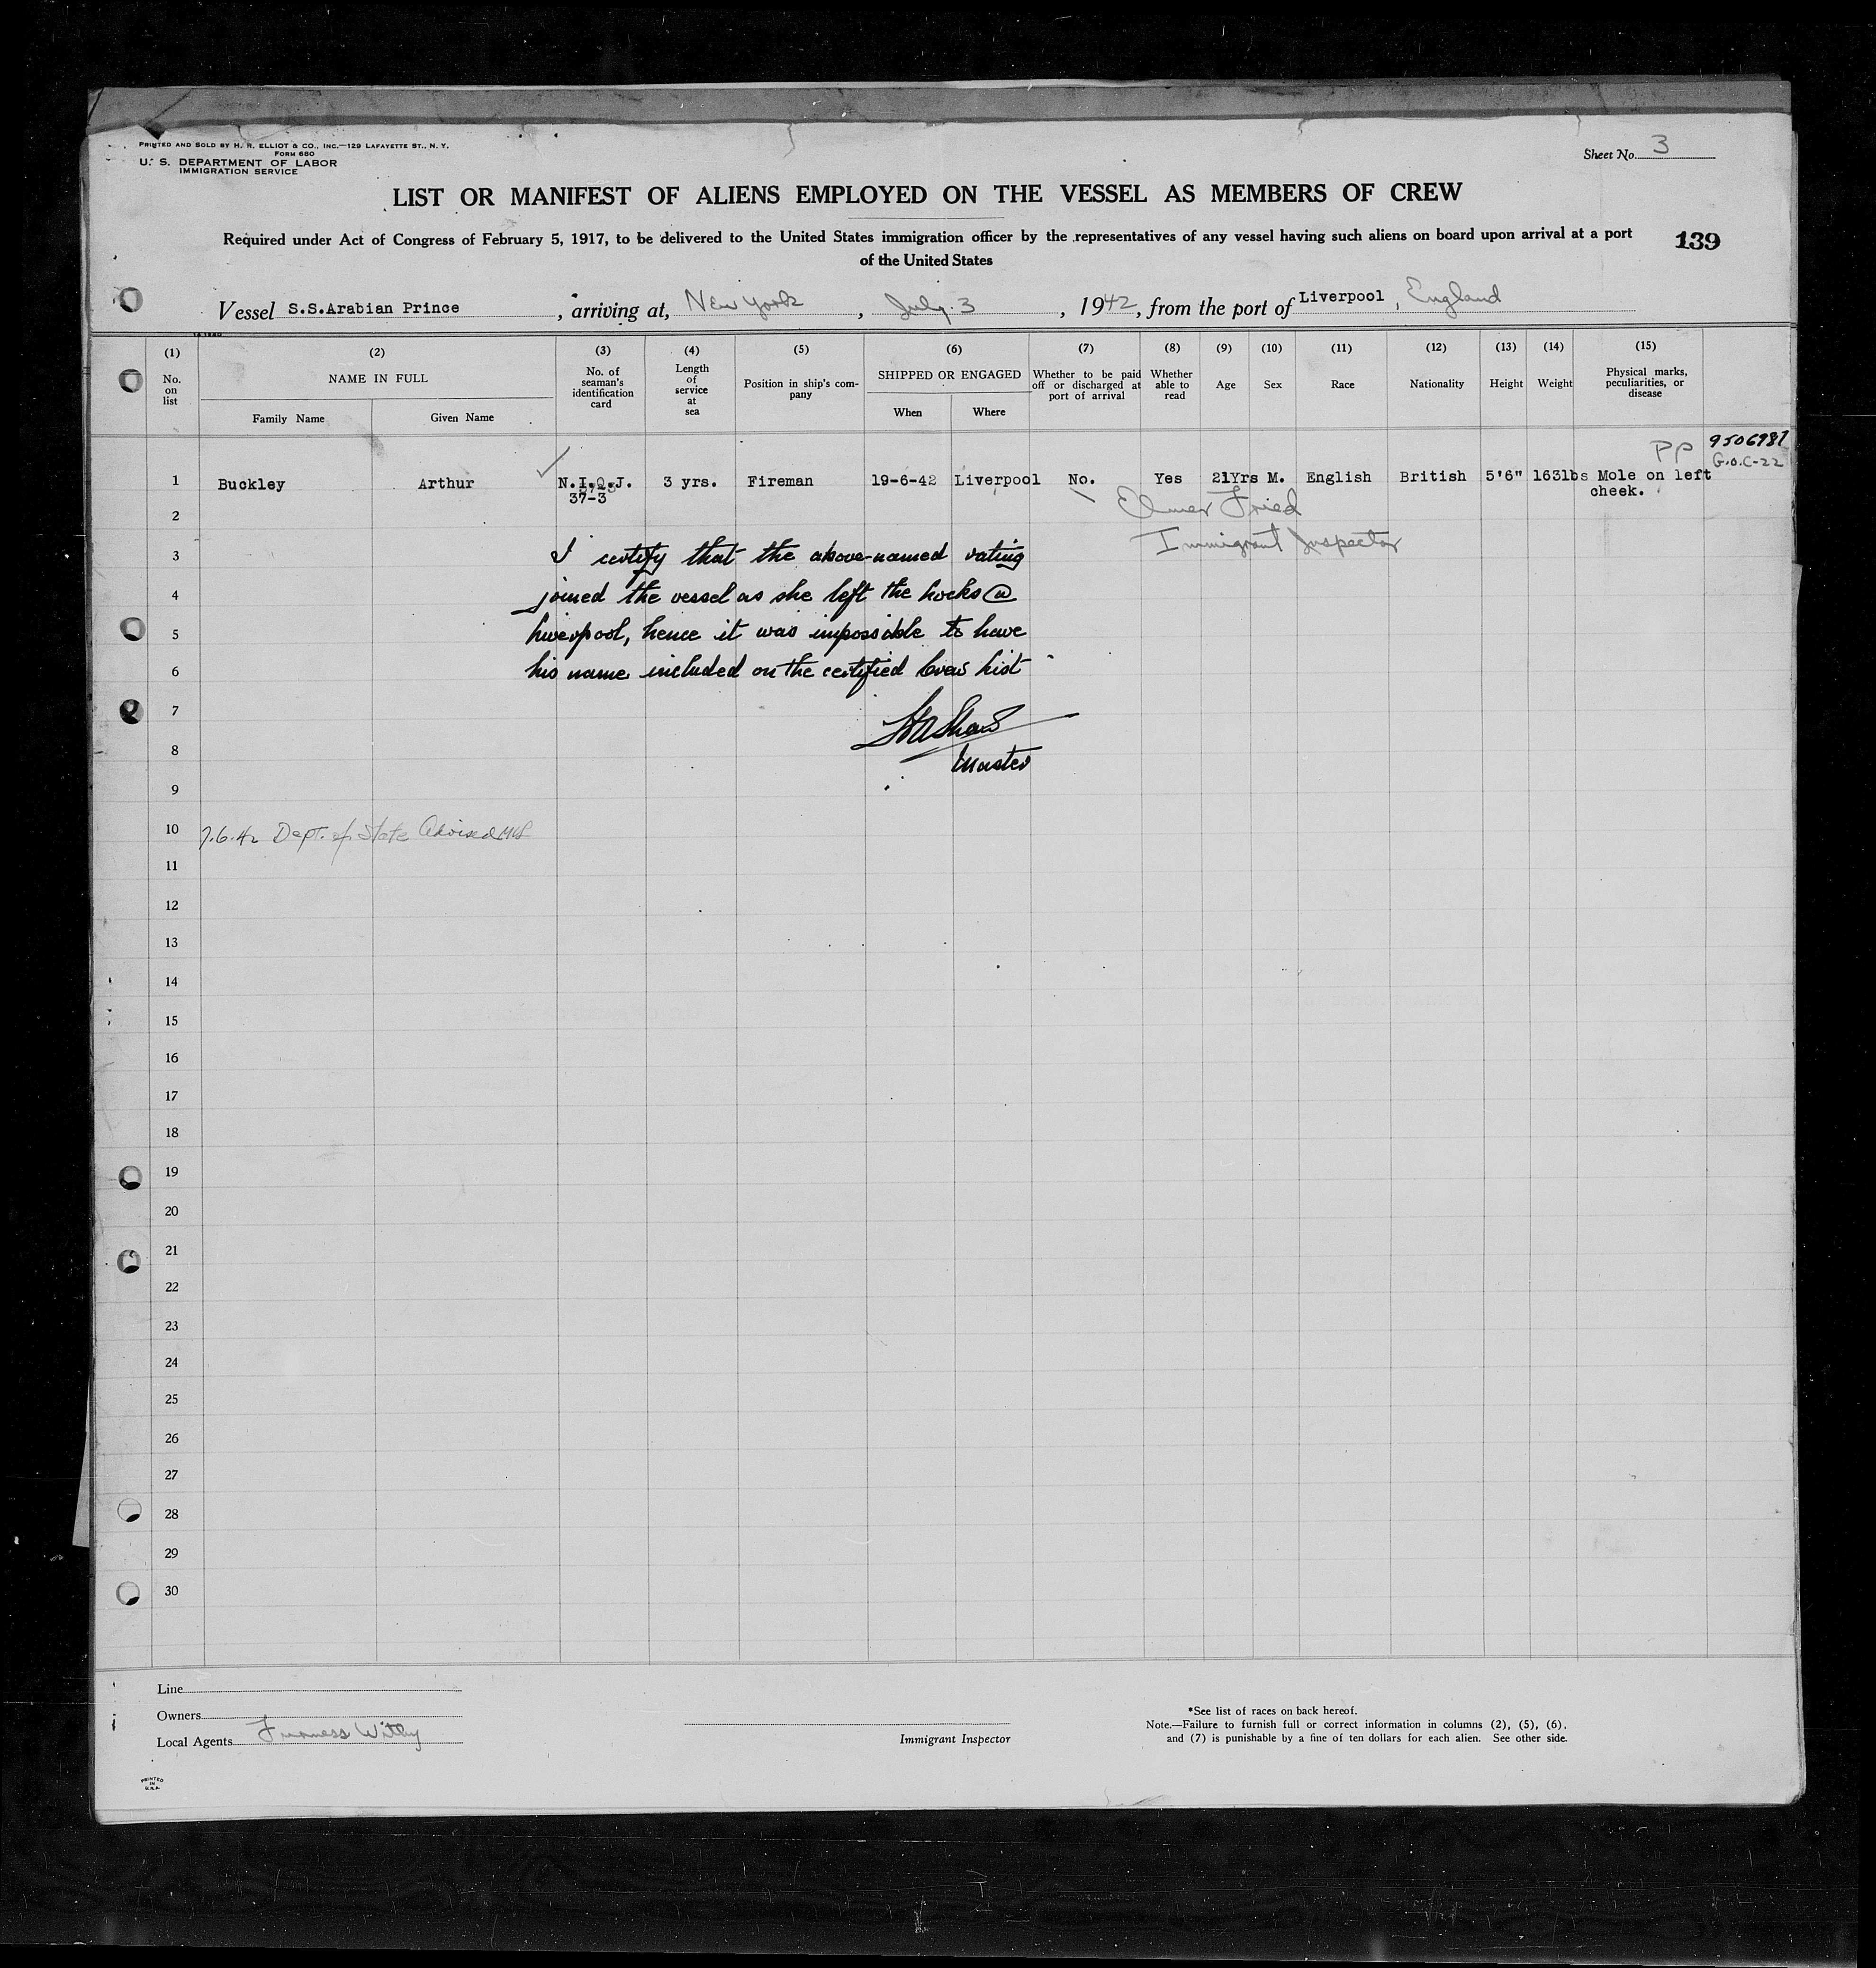 PRINTED AND SOLD BY H. R. ELLIOT & CO., INC.—129 LAFAYETTE ST., N. Y.
FORM 680
U. S. DEPARTMENT OF LABOR
IMMIGRATION SERVICE
Sheet No. 3
LIST OR MANIFEST OF ALIENS EMPLOYED ON THE VESSEL AS MEMBERS OF CREW
Required under Act of Congress of February 5, 1917, to be delivered to the United States immigration officer by the representatives of any vessel having such aliens on board upon arrival at a port
of the United States
139
Vessel S.S.Arabian Prince, arriving at, New York, July. 3, 1942, from the port of Liverpool, England
(1) (2) (3) (4) (5) (6) (7) (8) (9) (10) (11) (12) (13) (14) (15)
No. on list
NAME IN FULL
Family Name Given Name
No. of seaman's identification card
Length of service at sea
Position in ship's company
SHIPPED OR ENGAGED
When Where
Whether to be paid off or discharged at port of arrival
Whether able to read
Age
Sex
Race
Nationality
Height
Weight
Physical marks, peculiarities, or disease
PP 9506987
G.O.C-22
1 Buckley Arthur N.I.O.J. 3 yrs. Fireman 19-6-42 Liverpool No. Yes 21Yrs M. English British 5'6" 163lbs Mole on left
37-3 cheek.
2 Elmer Fried
Immigrant Inspector
3 I certify that the above-named rating
4 joined the vessel as she left the Locks @
5 Liverpool, hence it was impossible to have
6 his name included on the certified Crew List
7
8 Master
9
10 7.6.42 Dept. of State Advised
11
12
13
14
15
16
17
18
19
20
21
22
23
24
25
26
27
28
29
30
Line
Owners
Local Agents Furness Withy
Immigrant Inspector
*See list of races on back hereof.
Note.—Failure to furnish full or correct information in columns (2), (5), (6),
and (7) is punishable by a fine of ten dollars for each alien. See other side.
PRINTED
IN
U.S.A.